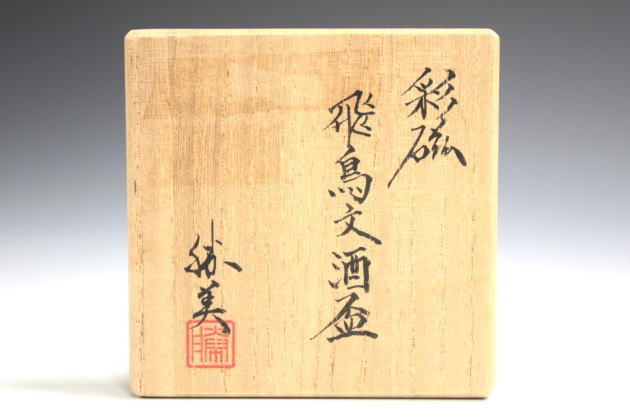 彩磁
飛鳥文酒盃
勝美